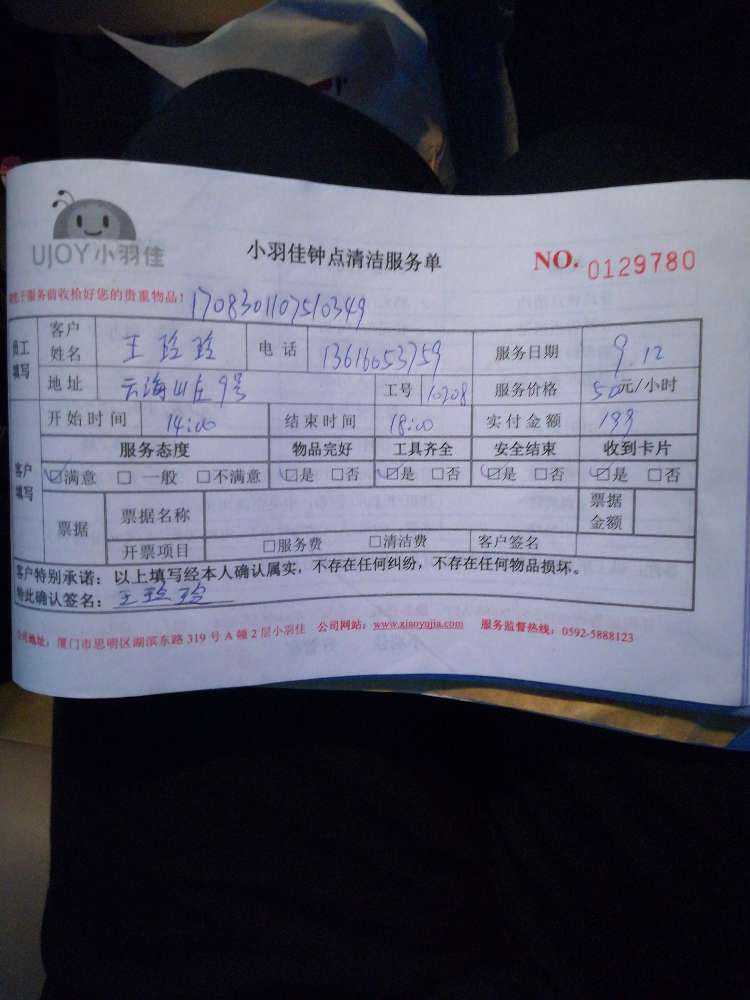 UJOY小羽佳
小羽佳钟点清洁服务单
NO. 0129780
于服务前收拾好您的贵重物品!
1708301107510349
员工填写 客户姓名 王玲玲 电话 13616053759 服务日期 9.12
地址 云海山庄9号 工号 10208 服务价格 50元/小时
客户填写 开始时间 14:00 结束时间 18:00 实付金额 199
服务态度 物品完好 工具齐全 安全结束 收到卡片
☑满意 □一般 □不满意 ☑是 □否 ☑是 □否 ☑是 □否 ☑是 □否
票据 票据名称 票据金额
开票项目 □服务费 □清洁费 客户签名
客户特别承诺:以上填写经本人确认属实,不存在任何纠纷,不存在任何物品损坏。
特此确认签名:王玲玲
公司地址:厦门市思明区湖滨东路319号A幢2层小羽佳 公司网站:www.xiaoyujia.com 服务监督热线:0592-5888123